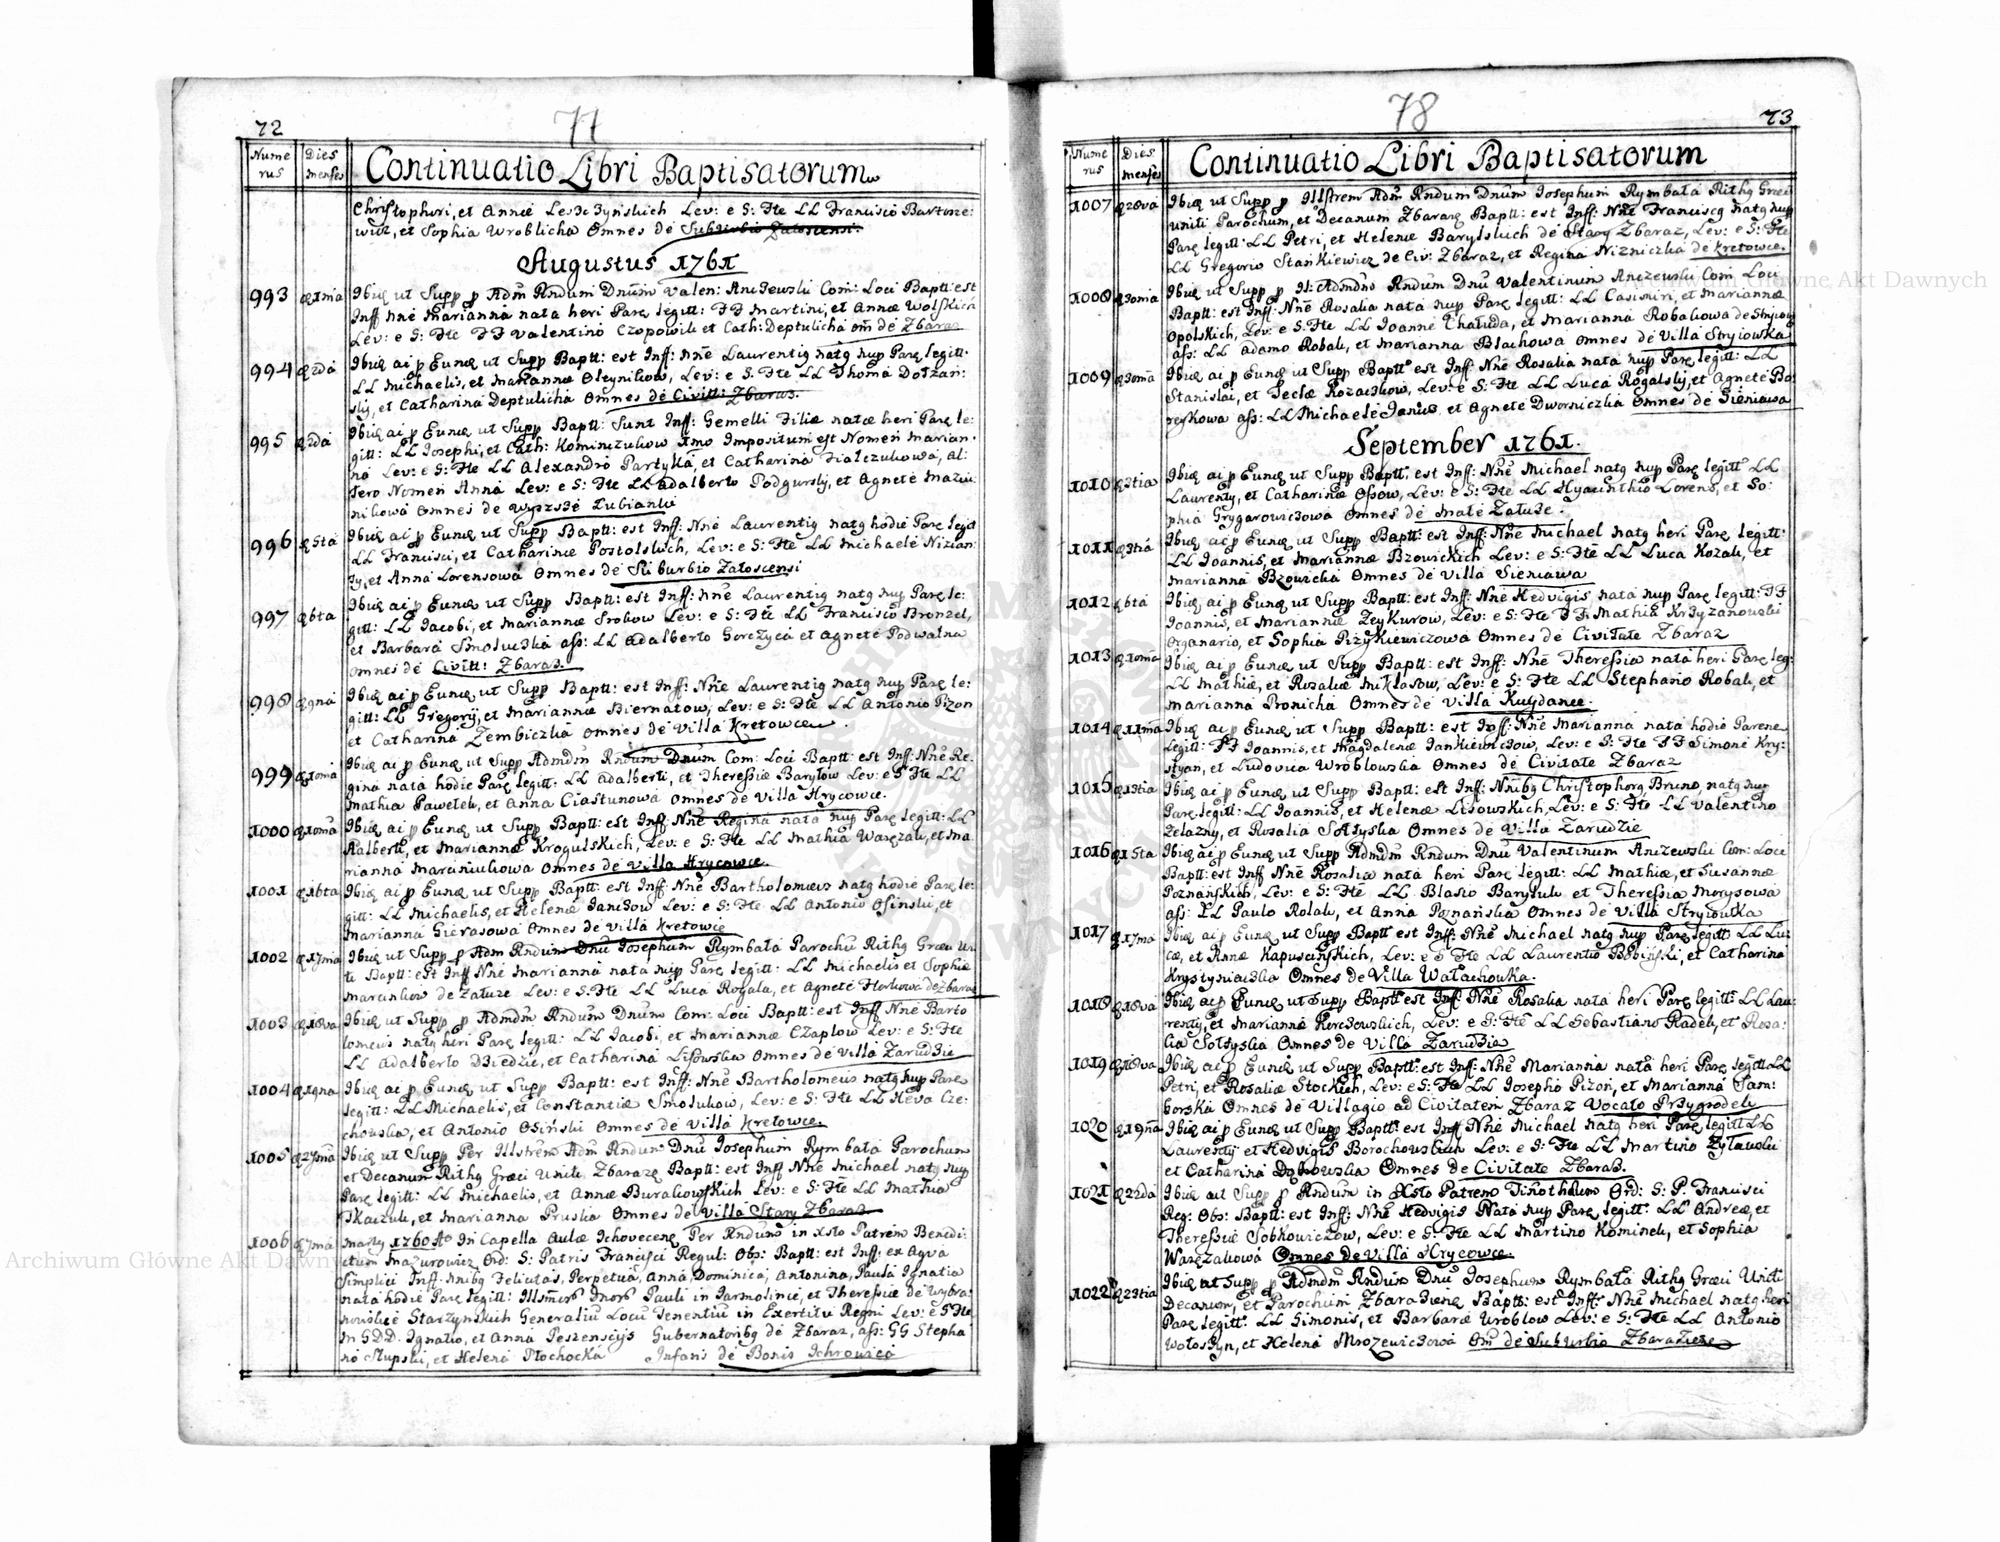 72
77
Nume
rus
Dies
menses
Continuatio Libri Baptisatorum
Christophori, et Annæ Leszczyńskich Lev: e S: Fte LL Francisco Bartosze:
wicz, et Sophia Wroblicha Omnes de Suburbio Załoscensi.
Augustus 1761
993 1ma Ibidē ut Supp p Adm Rndum Dnum Valen: Anczewski Com: Loci Baptt: est
Inff Nnē Marianna nata heri Parē legitt: FF Martini, et Annæ Wolskich
Lev: e S: Fte FF Valentino Czopowik et Cath: Deptulicha om de Zbaraz
994 2da Ibidē ai p Eundē ut Supp Baptt: est Inff: Nnē Laurentig natg nup Parē legitt:
LL Michaelis, et Mariannæ Oleynikow, Lev: e S: Fte LL Thoma Dołzań:
ski, et Catharina Deptulicha Omnes de Civitt: Zbaraz.
995 2da Ibidē ai p Eundē ut Supp Baptt: Sunt Inff: Gemelli Filiæ natæ heri Parē le:
gitt: LL Josephi, et Cath: Kominczukow 1mo Impositum est Nomen Marian:
na Lev: e S: Fte LL Alexandro Partyka, et Catharina Fialczukowa, al:
tero Nomen Anna Lev: e S: Fte LL Adalberto Podgurski, et Agnete Maziu:
nikowa Omnes de Wyzsze Lubianki
996 5ta Ibidē ai p Eundē ut Supp Baptt: est Inff: Nnē Laurentig natg hodie Parē legitt
LL Francisci, et Catharinæ Postolskich, Lev: e S: Fte LL Michaele Nizian:
ty, et Anna Lorensowa Omnes de Suburbio Załoscensi
997 6ta Ibidē ai p Eundē ut Supp Baptt: est Inff: Nnē Laurentig natg nup Parē le:
gitt: LL Jacobi, et Mariannæ Srokow Lev: e S: Fte LL Francisco Bronzel,
et Barbara Smolucka ass: LL Adalberto Gorczyca et Agnete Podwalna
Omnes de Civitt: Zbaraz.
998 9na Ibidē ai p Eundē ut Supp Baptt: est Inff: Nnē Laurentig natg nup Parē le:
gitt: LL Gregorij, et Mariannæ Biernatow, Lev: e S: Fte LL Antonio Pizon
et Catharina Zembiczka Omnes de Villa Kretowce.
999 10ma Ibidē ai p Eundē ut Supp Admdm Rndum Dnum Com: Loci Baptt: est Inff: Nnē Re:
gina nata hodie Parē legitt: LL Adalberti, et Theressiæ Baryłow Lev: e S: Fte LL
Mathia Pawełek, et Anna Ciastunowa Omnes de Villa Hrycowce.
1000 10ma Ibidē ai p Eundē ut Supp Baptt: est Inff: Nnē Regina nata nup Parē legitt: LL
Aalberti, et Mariannæ Krogulskich, Lev: e S: Fte LL Mathia Waręzak, et Ma
rianna Marciniukowa Omnes de Villa Hrycowce.
1001 16ta Ibidē ai p Eundē ut Supp Baptt: est Inff: Nnē Bartholomeus natg hodie Parē le:
gitt: LL Michaelis, et Helenæ Janczow Lev: e S: Fte LL Antonio Osinski, et
Marianna Gierasowa Omnes de Villa Kretowce
1002 17ma Ibidē ut Supp p Adm Rndum Dnu Josephum Rymbała Parochu Rithg Græci Uni
te Baptt: est Inff Nnē Marianna nata nup Parē legitt: LL Michaelis et Sophiæ
Marcinkow de Załuze Lev: e S: Fte LL Luca Rogala, et Agnete Horkowa de Zbaraz
1003 18va Ibidē ut Supp p Admdm Rndum Dnum Com: Loci Baptt: est Inff Nnē Barto
lomeus natg heri Parē legitt: LL Jacobi, et Mariannæ Czaplow Lev: e S: Fte
LL Adalberto Dziedzic, et Catharina Lisowska Omnes de Villa Zarudzie
1004 19na Ibidē ai p Eundē ut Supp Baptt: est Inff: Nnē Bartholomeus natg nup Parē
legitt: LL Michaelis, et Constantiæ Smolukow, Lev: e S: Fte LL Heva Cze:
chowska, et Antonio Osiński Omnes de Villa Kretowce.
1005 27ma Ibidē ut Supp Per Illstrem Adm Rndum Dnu Josephum Rymbała Parochum
et Decanum Rithg Græci Uniti Zbarazē Baptt: est Inff Nnē Michael natg nup
Parē legitt: LL Michaelis, et Annæ Burakowskich Lev: e S: Fte LL Mathia
Tkaczuk, et Marianna Pruska Omnes de Villa Stary Zbaraz
1006 7ma Martg 1760 Ao In Capella Aulæ Ichovecenē Per Rndum in Xsto Patrem Benedi:
ctum Mazurowicz Ord: S: Patris Francisci Regul: Obs: Baptt: est Inff: ex Aqva
Simplici Inff: Nnibg Felicitas, Perpetua, Anna, Dominica, Antonina, Paula Ignatia
nata hodie Parē legitt: Illsmcrs Dnors Pauli in Jarmolince, et Theressiæ de Wybra:
nowskie Starzynskich Generaliu Locu Tenentiu in Exertitu Regni Lev: e S: Fte
M GDD. Ignatio, et Anna Peszenscijs Gubernatoribg de Zbaraz, ass: GG Stepha
no Słupski, et Helena Płochocka Infans de Bonis Ichrowica
73
78
Nume
rus
Dies
menses
Continuatio Libri Baptisatorum
1007 28va Ibidē ut Supp p Illstrem Adm Rndum Dnum Josephum Rymbała Rithg Græci
uniti Parochum, et Decanum Zbarazē Baptt: est Inff: Nnē Franciscg natg nup
Parē legitt: LL Petri, et Helenæ Barylskich de Stary Zbaraz, Lev: e S: Fte
LL Gregorio Stańkiewicz de Civ: Zbaraz, et Regina Nizniczka de Kretowce.
1008 30ma Ibidē ut Supp p Il: Admdm Rndum Dnu Valentinum Anczewski Com Loci
Baptt: est Inff: Nnē Rosalia nata nup Parē legitt: LL Casimiri, et Mariannæ
Opolskich, Lev: e S: Fte LL Joanne Chałuda, et Marianna Robakowa de Stryiow
ass: LL Adamo Robak, et Marianna Blachowa Omnes de Villa Stryiowka
1009 30ma Ibidē ai p Eundē ut Supp Baptt: est Inff: Nnē Rosalia nata nup Parē legitt: LL
Stanislai, et Teclæ Kozaczkow, Lev: e S: Fte LL Luca Rogalski, et Agnete Bo
reykowa ass: LL Michaele Janus, et Agnete Dworniczka Omnes de Sieniawa
September 1761.
1010 3tia Ibidē ai p Eundē ut Supp Baptt: est Inff: Nnē Michael natg nup Parē legitt: LL
Laurenty, et Catharinæ Osow, Lev: e S: Fte LL Hyacinthio Lorens, et So:
phia Grygarowiczowa Omnes de Małe Załuze.
1011 3tia Ibidē ai p Eundē ut Supp Baptt: est Inff: Nnē Michael natg heri Parē legitt:
LL Joannis, et Mariannæ Bzowickich Lev: e S: Fte LL Luca Kozak, et
Marianna Bzowicka Omnes de Villa Sieniawa
1012 6ta Ibidē ai p Eundē ut Supp Baptt: est Inff: Nnē Hedvigis nata nup Parē legitt: FF
Joannis, et Mariannæ Zeykurow, Lev: e S: Fte FF Mathia Krzyzanowski
Organario, et Sophia Pizykiewiczowa Omnes de Civitate Zbaraz
1013 10ma Ibidē ai p Eundē ut Supp Baptt: est Inff: Nnē Theressia nata heri Parē leg:
LL Mathiæ, et Rosaliæ Mikłasow, Lev: e S: Fte LL Stephano Robak, et
Marianna Pronicha Omnes de Villa Kuydance.
1014 11ma Ibidē ai p Eundē ut Supp Baptt: est Inff: Nnē Marianna nata hodie Parenē
legitt: FF Joannis, et Magdalenæ Jankiewiczow, Lev: e S: Fte FF Simone Kry:
styan, et Ludovica Wroblowska Omnes de Civitate Zbaraz
1015 13tia Ibidē ai p Eundē ut Supp Baptt: est Inff: Nnibg Christophorg, Bruno, natg nup
Parē legitt: LL Joannis, et Helenæ Lisowskich, Lev: e S: Fte LL Valentino
Zelazny, et Rosalia Sołtyska Omnes de Villa Zarudzie
1016 15ta Ibidē ai p Eundē ut Supp Admdm Rndum Dnu Valentinum Anczewski Com: Loci
Baptt: est Inff Nnē Rosalia nata heri Parē legitt: LL Mathiæ, et Susannæ
Poznańskich, Lev: e S: Fte LL Blasio Baryluk et Theressia Morysowa
ass: LL Paulo Rolak, et Anna Poznańska Omnes de Villa Stryiowka
1017 17ma Ibidē ai p Eundē ut Supp Baptt: est Inff: Nnē Michael natg nup Parē legitt: LL Lu:
cæ, et Annæ Kapuscińskich, Lev: e S: Fte LL Laurentio Bobiński, et Catharina
Krystyniaczka Omnes de Villa Wałachowka.
1018 18va Ibidē ai p Eundē ut Supp Baptt: est Inff: Nnē Rosalia nata heri Parē legitt: LL Lau:
renty, et Marianna Kerczowskich, Lev: e S: Fte LL Sebastiano Radek, et Rosa:
lia Sołtyska Omnes de Villa Zarudzie
1019 18va Ibidē ai p Eundē ut Supp Baptt: est Inff: Nnē Marianna nata heri Parē legitt LL
Petri, et Rosaliæ Stockich, Lev: e S: Fte LL Josepho Pizon, et Marianna Sam:
borska Omnes de Villagio ad Civitatem Zbaraz Vocato Przygrodek
1020 19na Ibidē ai p Eundē ut Supp Baptt: est Inff Nnē Michael natg heri Parē legitt LL
Laurenty et Hedvigis Borochowskich Lev: e S: Fte LL Martino Zyławski
et Catharina Dobkowska Omnes de Civitate Zbaraz.
1021 22da Ibidē ait Supp p Rndum in Xsto Patrem Timotheum Ord: S: P. Francisci
Reg: Obs: Baptt: est Inff: Nnē Hedvigis Nata nup Parē legitt: LL Andreæ, et
Theressiæ Sobkowiczow, Lev: e S: Fte LL Martino Kominek, et Sophia
Waręzakowa Omnes de Villa Hrycowce.
1022 23tia Ibidē ut Supp p Admdm Rndum Dnu Josephum Rymbała Rithg Græci Uniti
Decanum, et Parochum Zbarazienē Baptt: est Inff: Nnē Michael natg heri
Parē legitt: LL Simonis, et Barbaræ Wroblow Lev: e S: Fte LL Antonio
Wołoszyn, et Helena Mrozewiczowa Om de Suburbio Zbarazienē
Archiwum Główne Akt Dawnych
Archiwum Główne Akt Dawnych
ARCHIWUM GŁÓWNE AKT DAWNYCH